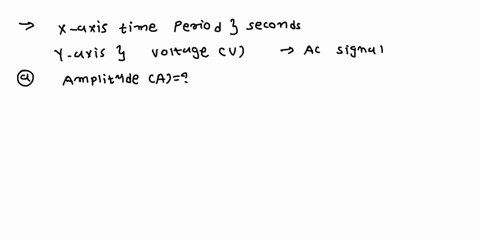 → X-axis time period } seconds
Y-axis } voltage (V) → AC signal
ⓐ Amplitude (A)=?